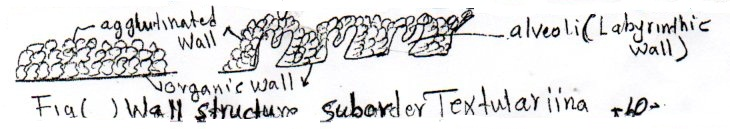 agglutinated
wall
alveoli (Labyrinthic
wall)
organic wall
Fig( ) Wall structure suborder Textulariina -10-